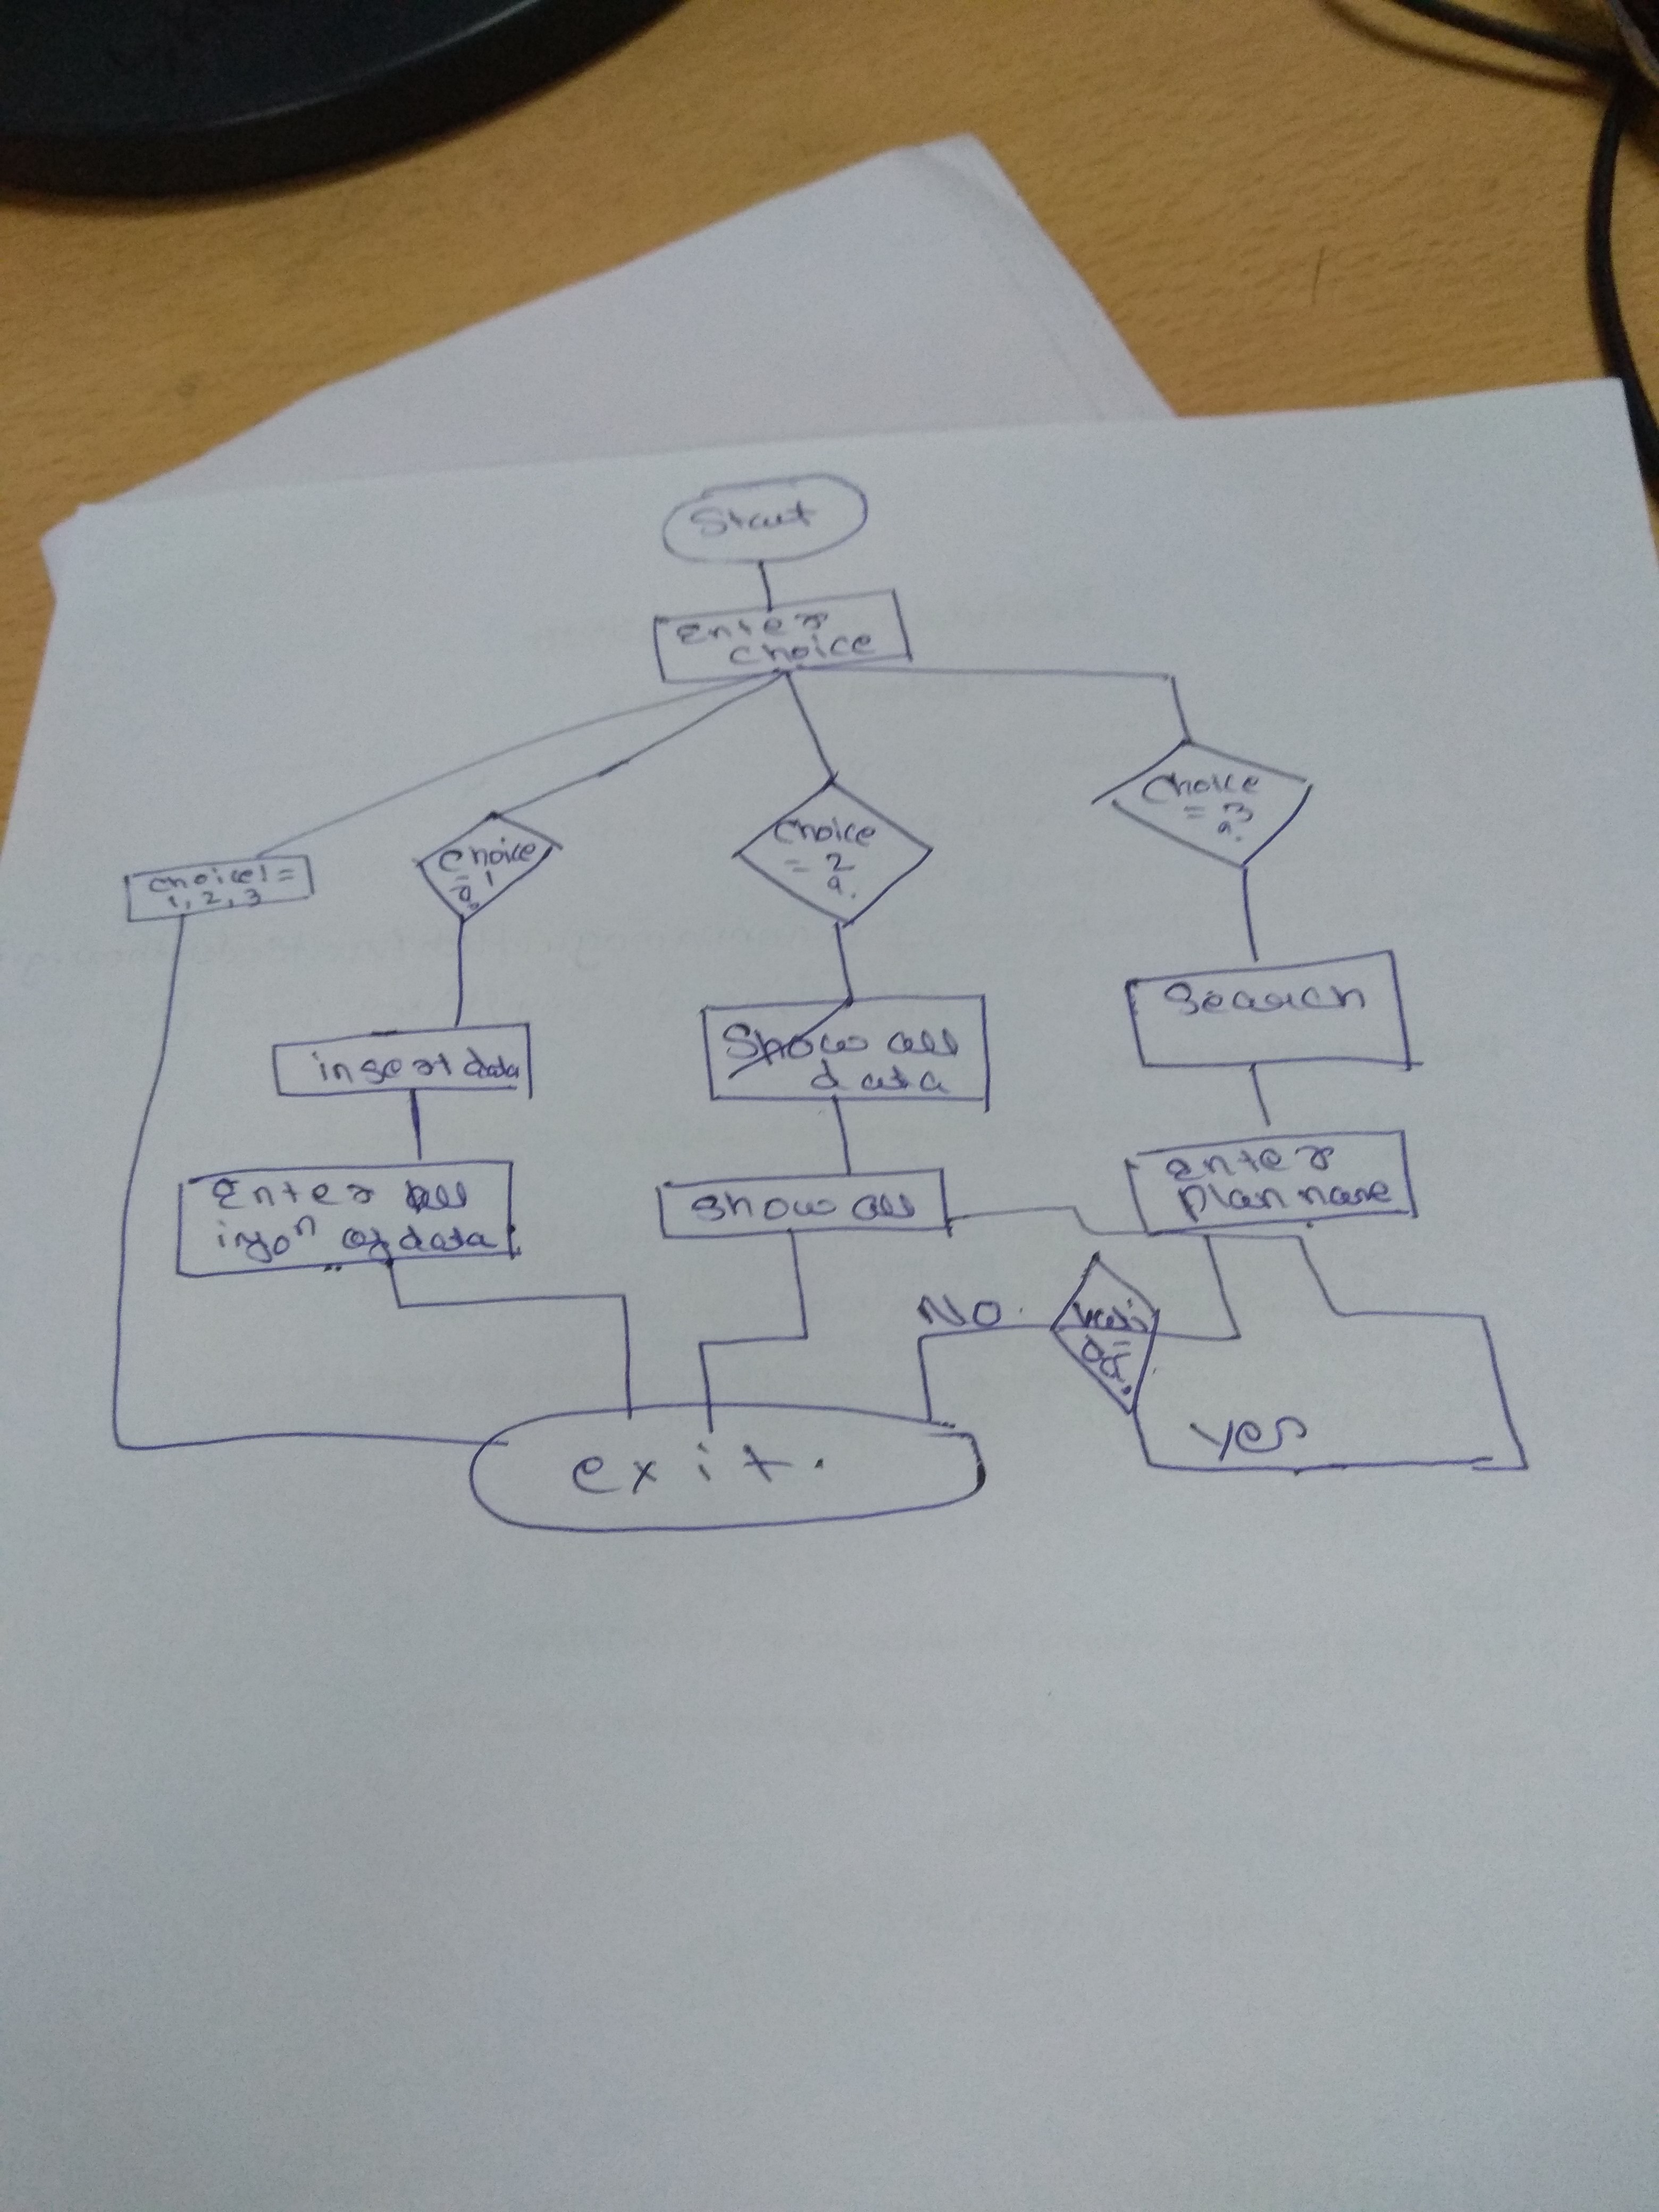 Start
Enter
choice
choice! =
1, 2, 3
Choice
= 1
?
Choice
= 2
?
Choice
= 3
?
insert data
Show all
data
Search
Enter all
info^n of data
Show all
Enter
plan name
NO.
Yes
exit.